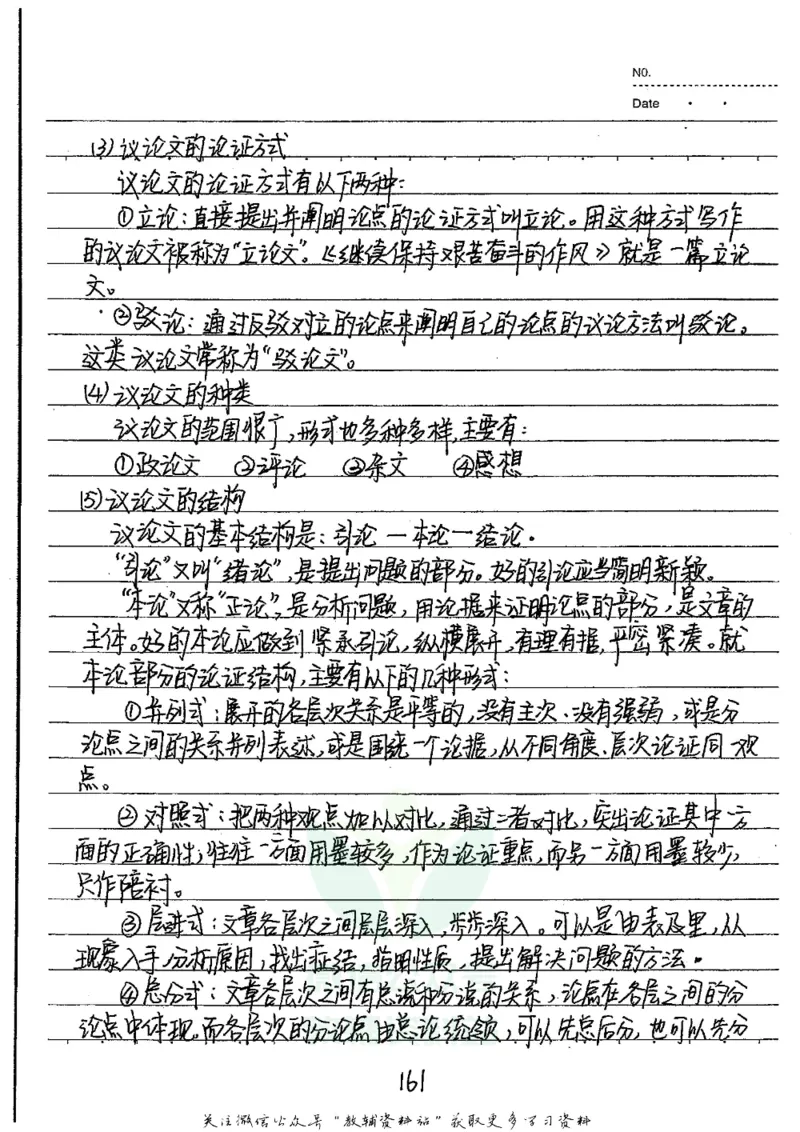 NO.
Date
(3)议论文的论证方式
议论文的论证方式有以下两种:
①立论:直接提出并阐明论点的论证方式叫立论。用这种方式写作
的议论文被称为“立论文”。《继续保持艰苦奋斗的作风》就是一篇立论
文。
②驳论:通过反驳对立的论点来阐明自己的论点的议论方法叫驳论。
这类议论文常称为“驳论文”。
(4)议论文的种类
议论文的范围很广,形式也多种多样,主要有:
①政论文 ②评论 ③杂文 ④感想
(5)议论文的结构
议论文的基本结构是:引论一本论一结论。
“引论”又叫“绪论”,是提出问题的部分。好的引论应当简明新颖。
“本论”又称“正论”,是分析问题,用论据来证明论点的部分,是文章的
主体。好的本论应做到紧承引论,纵横展开,有理有据,严密紧凑。就
本论部分的论证结构,主要有以下的几种形式:
①并列式:展开的各层次关系是平等的,没有主次、没有强弱,或是分
论点之间的关系并列表述,或是围绕一个论据,从不同角度、层次论证同一观
点。
②对照式:把两种观点加以对比,通过二者对比,突出论证其中一方
面的正确性,往往一方面用墨较多,作为论证重点,而另一方面用墨较少,
只作陪衬。
③层进式:文章各层次之间层层深入,步步深入。可以是由表及里,从
现象入手,分析原因,找出症结,指明性质,提出解决问题的方法。
④总分式:文章各层次之间有总说和分说的关系,论点在各层之间的分
论点中体现,而各层次的分论点由总论统领,可以先总后分,也可以先分
161
关注微信公众号“教辅资料站”获取更多学习资料